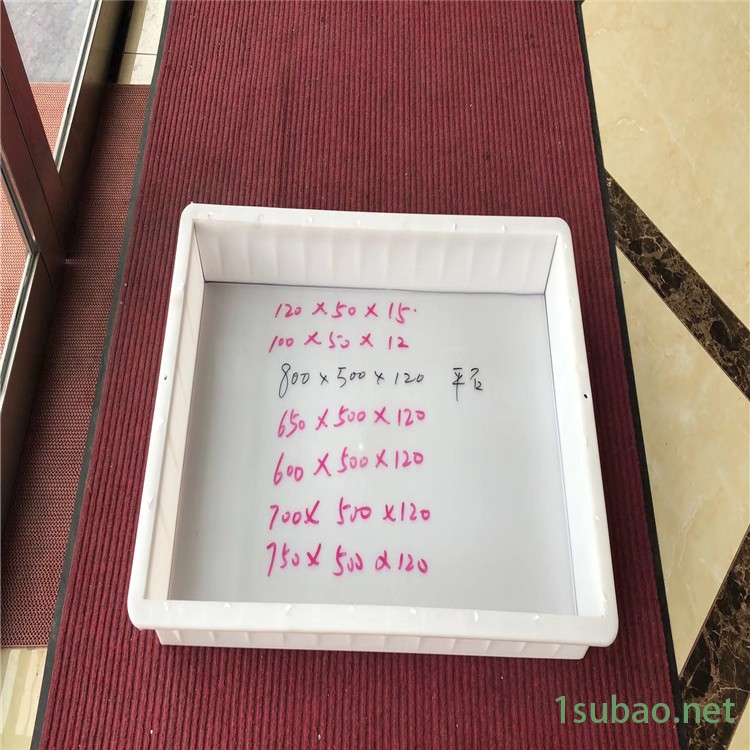 120×50×15.
100×50×12
800×500×120 平
650×500×120
600×500×120
700× 500×120
750× 500×120
1subao.net